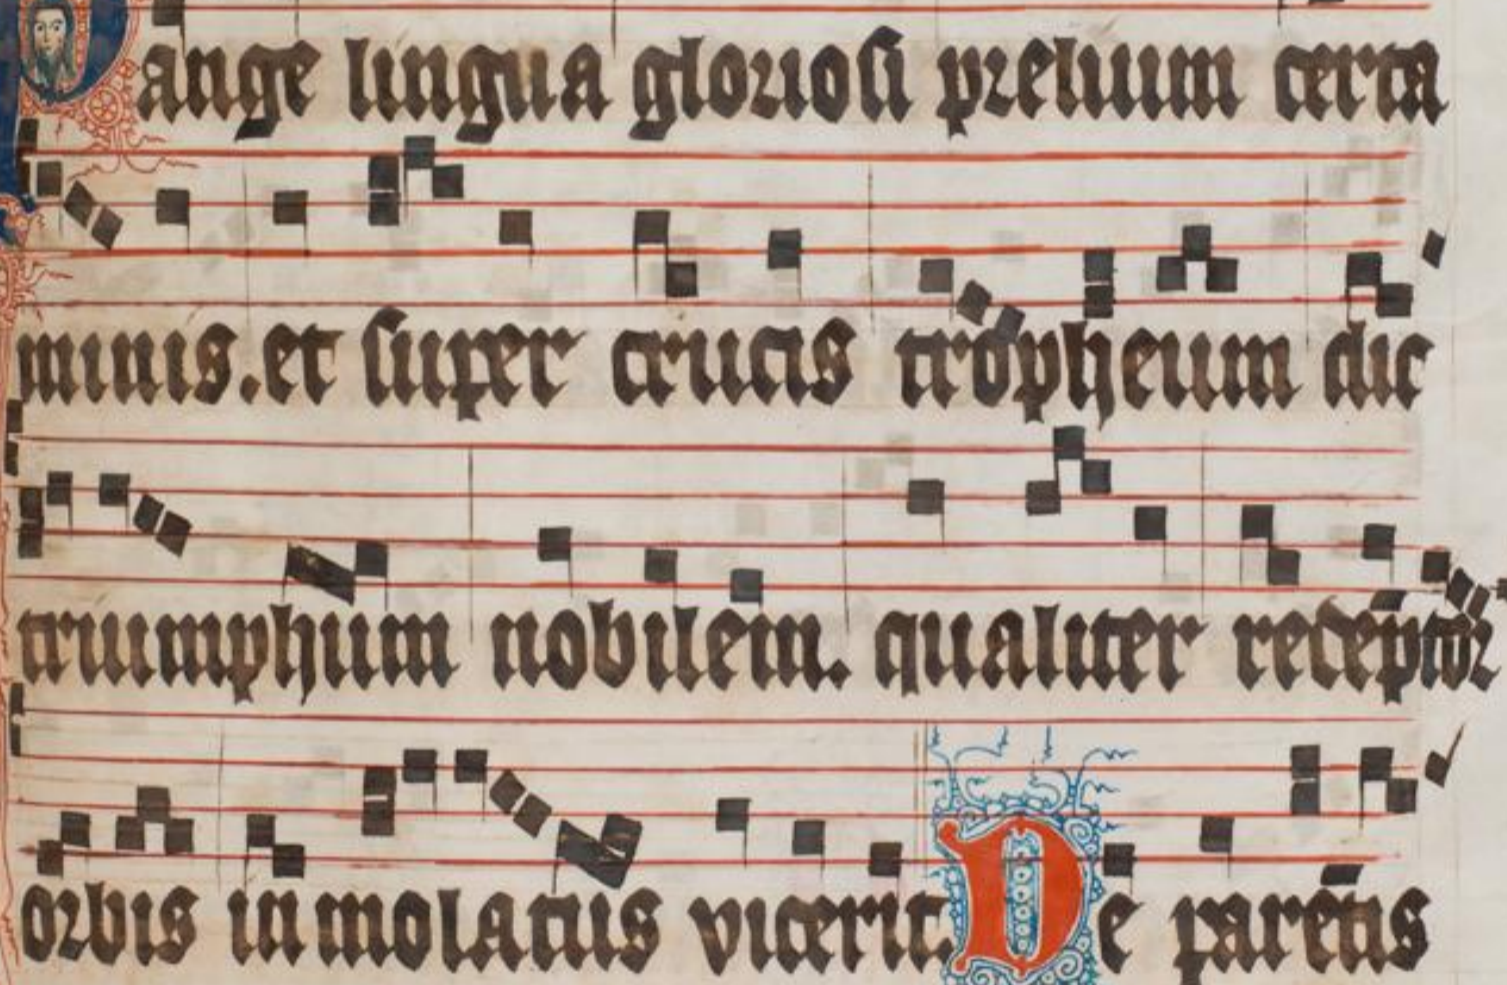 Pange lingua gloriosi prelium certa
minis. et super crucis tropheum dic
triumphum nobilem. qualiter redēptor
orbis in molatus vicerit De parētis